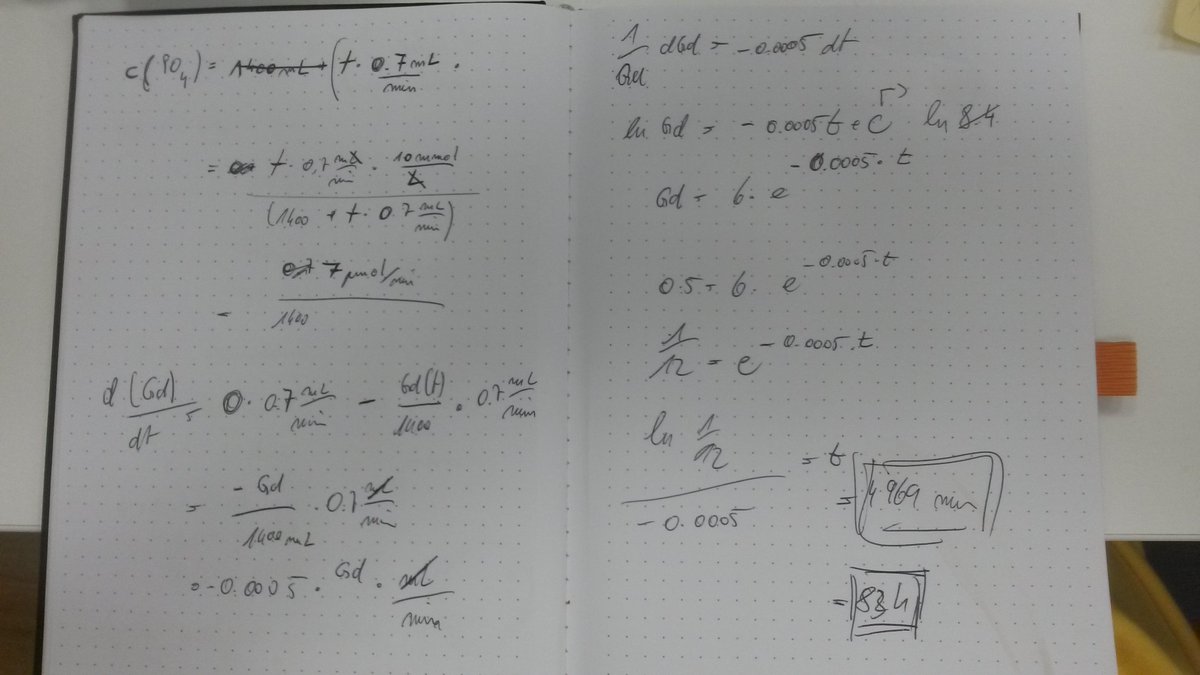 c(PO4) = 1400 mL + (t · 0.7 mL/min ·
= t · 0.7 mL/min · 10 mmol/L
(1400 + t · 0.7 mL/min)
= 0.7 7 µmol/min
1400
d(Gd)/dt = 0 · 0.7 mL/min − Gd(t)/1400 · 0.7 mL/min
= −Gd/1400 mL · 0.7 mL/min
= −0.0005 · Gd · mL/min
1/Gd dGd = −0.0005 dt
ln Gd = −0.0005 t + C ln 8.4
Gd = 6 · e^−0.0005 · t
0.5 = 6 · e^−0.0005 · t
1/12 = e^−0.0005 · t
ln 1/12
−0.0005
= t
= 4969 min
= 83 h